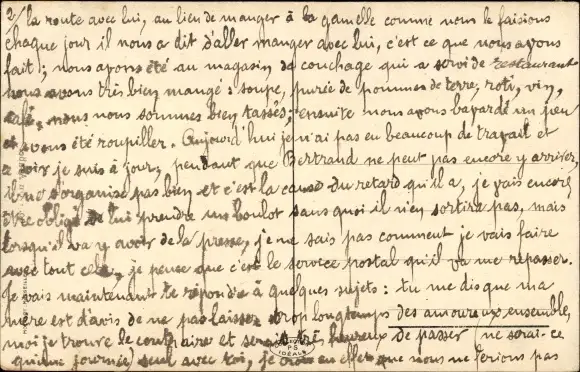 2/ la route avec lui, au lieu de manger à la gamelle comme nous le faisions
chaque jour il nous a dit d'aller manger avec lui, c'est ce que nous avons
fait; nous avons été au magasin de couchage qui a servi de restaurant
nous avons très bien mangé: soupe, purée de pommes de terre, roti, vin,
café, nous nous sommes bien tassés; ensuite nous avons bavardé un peu
et avons été roupiller. Aujourd'hui je n'ai pas eu beaucoup de travail et
ce soir je suis à jour, pendant que Bertrand ne peut pas encore y arriver,
il ne s'organise pas bien et c'est la cause du retard qu'il a, je vais encore
être obligé de lui prendre un boulot sans quoi il n'en sortira pas, mais
lorsqu'il va y avoir de la presse, je ne sais pas comment je vais faire
avec tout cela, je pense que c'est le service postal qu'il va me repasser.
Je vais maintenant te répondre à quelques sujets: tu me dis que ma
mère est d'avis de ne pas laisser trop longtemps des amoureux ensemble,
moi je trouve le contraire et serais très heureux de passer ne serait-ce
qu'une journée seul avec toi, je crois en effet que nous ne ferions pas
PS
IDÉAL